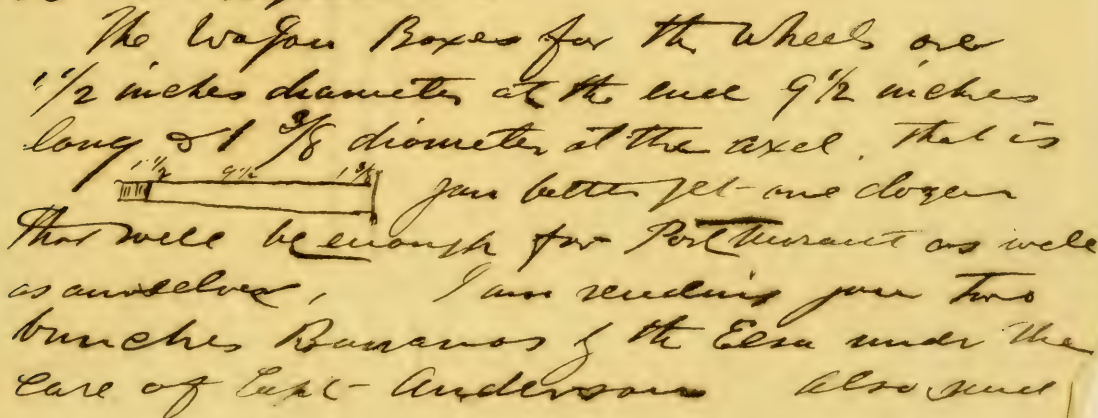 The Wagon Boxes for the Wheels are
1 1/2 inches diameter at the end 9 1/2 inches
long & 1 3/8 diameter at the axel. That is
1 1/2 9 1/2 1 3/8 you better get one dozen
that will be enough for Port Morant as well
as ourselves, I am sending you two
bunches Bananas by the Elsa under the
care of Capt Anderson also